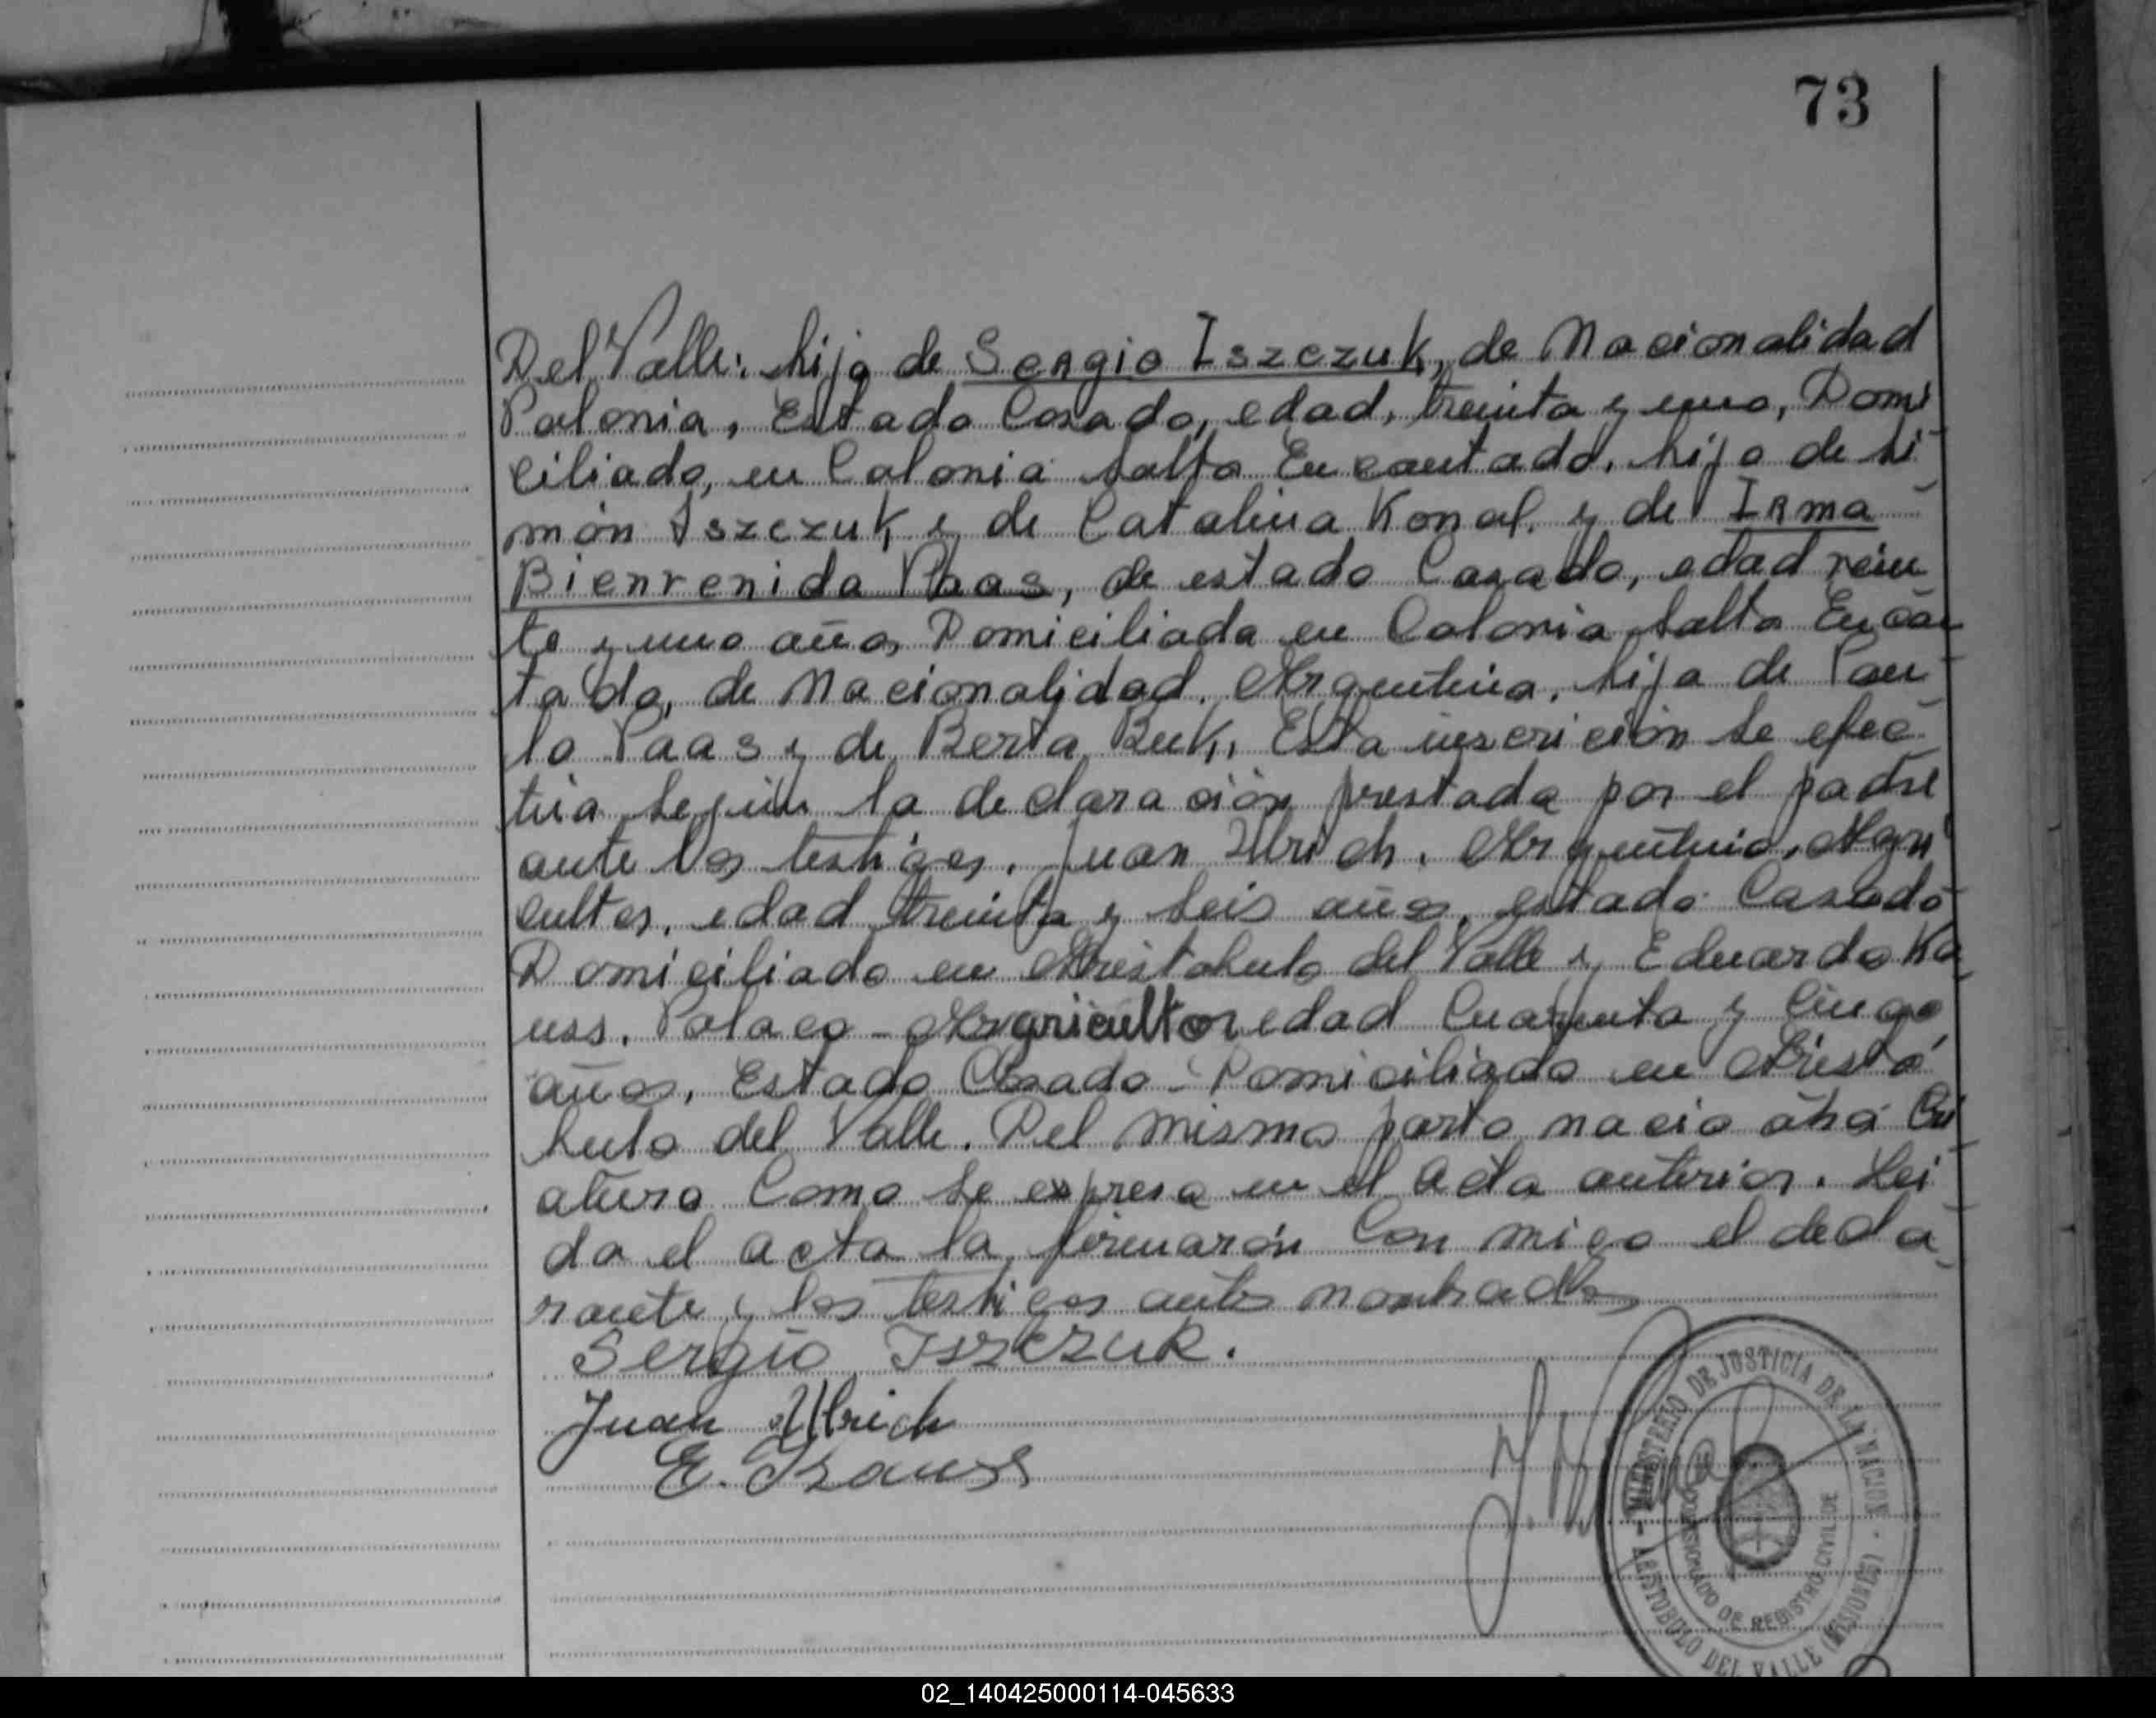 73
Del Valle: hija de Sergio Iszczuk, de Nacionalidad
Polonia, Estado Casado, edad, treinta y uno, Domi
ciliado, en Colonia Salto Encantado, hijo de Si-
món Iszczuk y de Catalina Konal, y de Irma
Bienvenida Paas, de estado Casado, edad vein
te y uno años Domiciliada en Colonia Salto Encan
tado, de Nacionalidad. Argentina, hija de Pau-
lo Paas y de Berta Buk, Esta inscrición se efec-
túa según la declaración prestada por el padre
ante los testigos. Juan Ulrich. Argentino, Agri
cultor, edad treinta y seis años, estado Casado
Domiciliado en Aristobulo del Valle y Eduardo Ka
uss. Polaco - Agricultor edad Cuarenta y Cinco
años, Estado Casado - Domiciliado en Aristó
bulo del Valle. Del mismo parto nacio otra Cri
atura Como se expresa en el acta anterior. Lei-
da el acta la firmarón Con migo el decla-
rante y los testigos antes nombrados
Sergio Iszczuk.
Juan Ulrich
E. Krauss
MINISTERIO DE JUSTICIA DE LA NACION
COMISIONADO DE REGISTRO CIVIL DE
ARISTOBULO DEL VALLE (MISIONES)
02_140425000114-045633